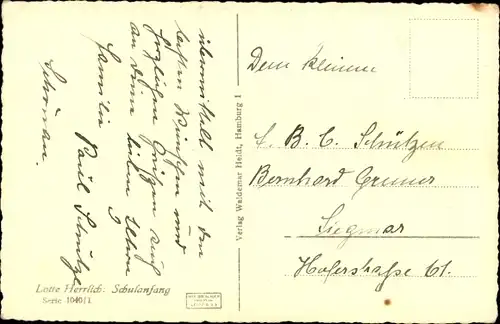 Dem kleinen
A. B. C. Schützen
Bernhard
Siegmar
Hoferstraße 61.
übermittelt mit den
besten Wünschen und
herzlichen Grüßen auch
an Deine lieben Eltern
Familie Paul Schulze
Verlag Waldemar Heidt, Hamburg 1
Lotte Herrlich: Schulanfang
Serie 1040/1